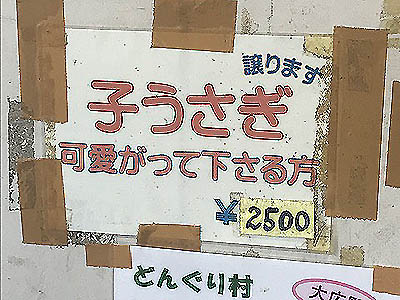 譲ります
子うさぎ
可愛がって下さる方
¥2500
どんぐり村